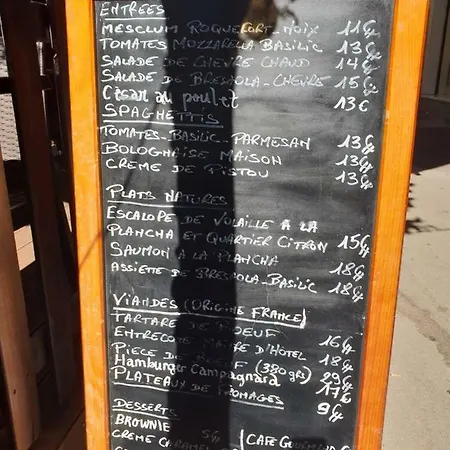 ENTREES
MESCLUN ROQUEFORT-NOIX 11€
TOMATES MOZZARELLA BASILIC 13€
SALADE DE CHEVRE CHAUD 14€
SALADE DE BRESAOLA-CHEVRE 15€
César au poulet 13€
SPAGHETTIS
TOMATES-BASILIC-PARMESAN 13€
BOLOGNAISE MAISON 13€
CREME DE PISTOU 13€
PLATS NATURES
ESCALOPE DE VOLAILLE A LA
PLANCHA ET QUARTIER CITRON 15€
SAUMON A LA PLANCHA 18€
ASSIETE DE BRESAOLA-BASILIC 18€
VIANDES (ORIGINE FRANCE)
TARTARE DE BOEUF 16€
ENTRECOTE MAITRE D'HOTEL 18€
PIECE DE BOEUF (380grs) 22€
Hamburger Campagnard 17€
PLATEAUX DE FROMAGES 9€
DESSERTS
BROWNIE
CREME CARAMEL 5€ CAFE GOURMAND